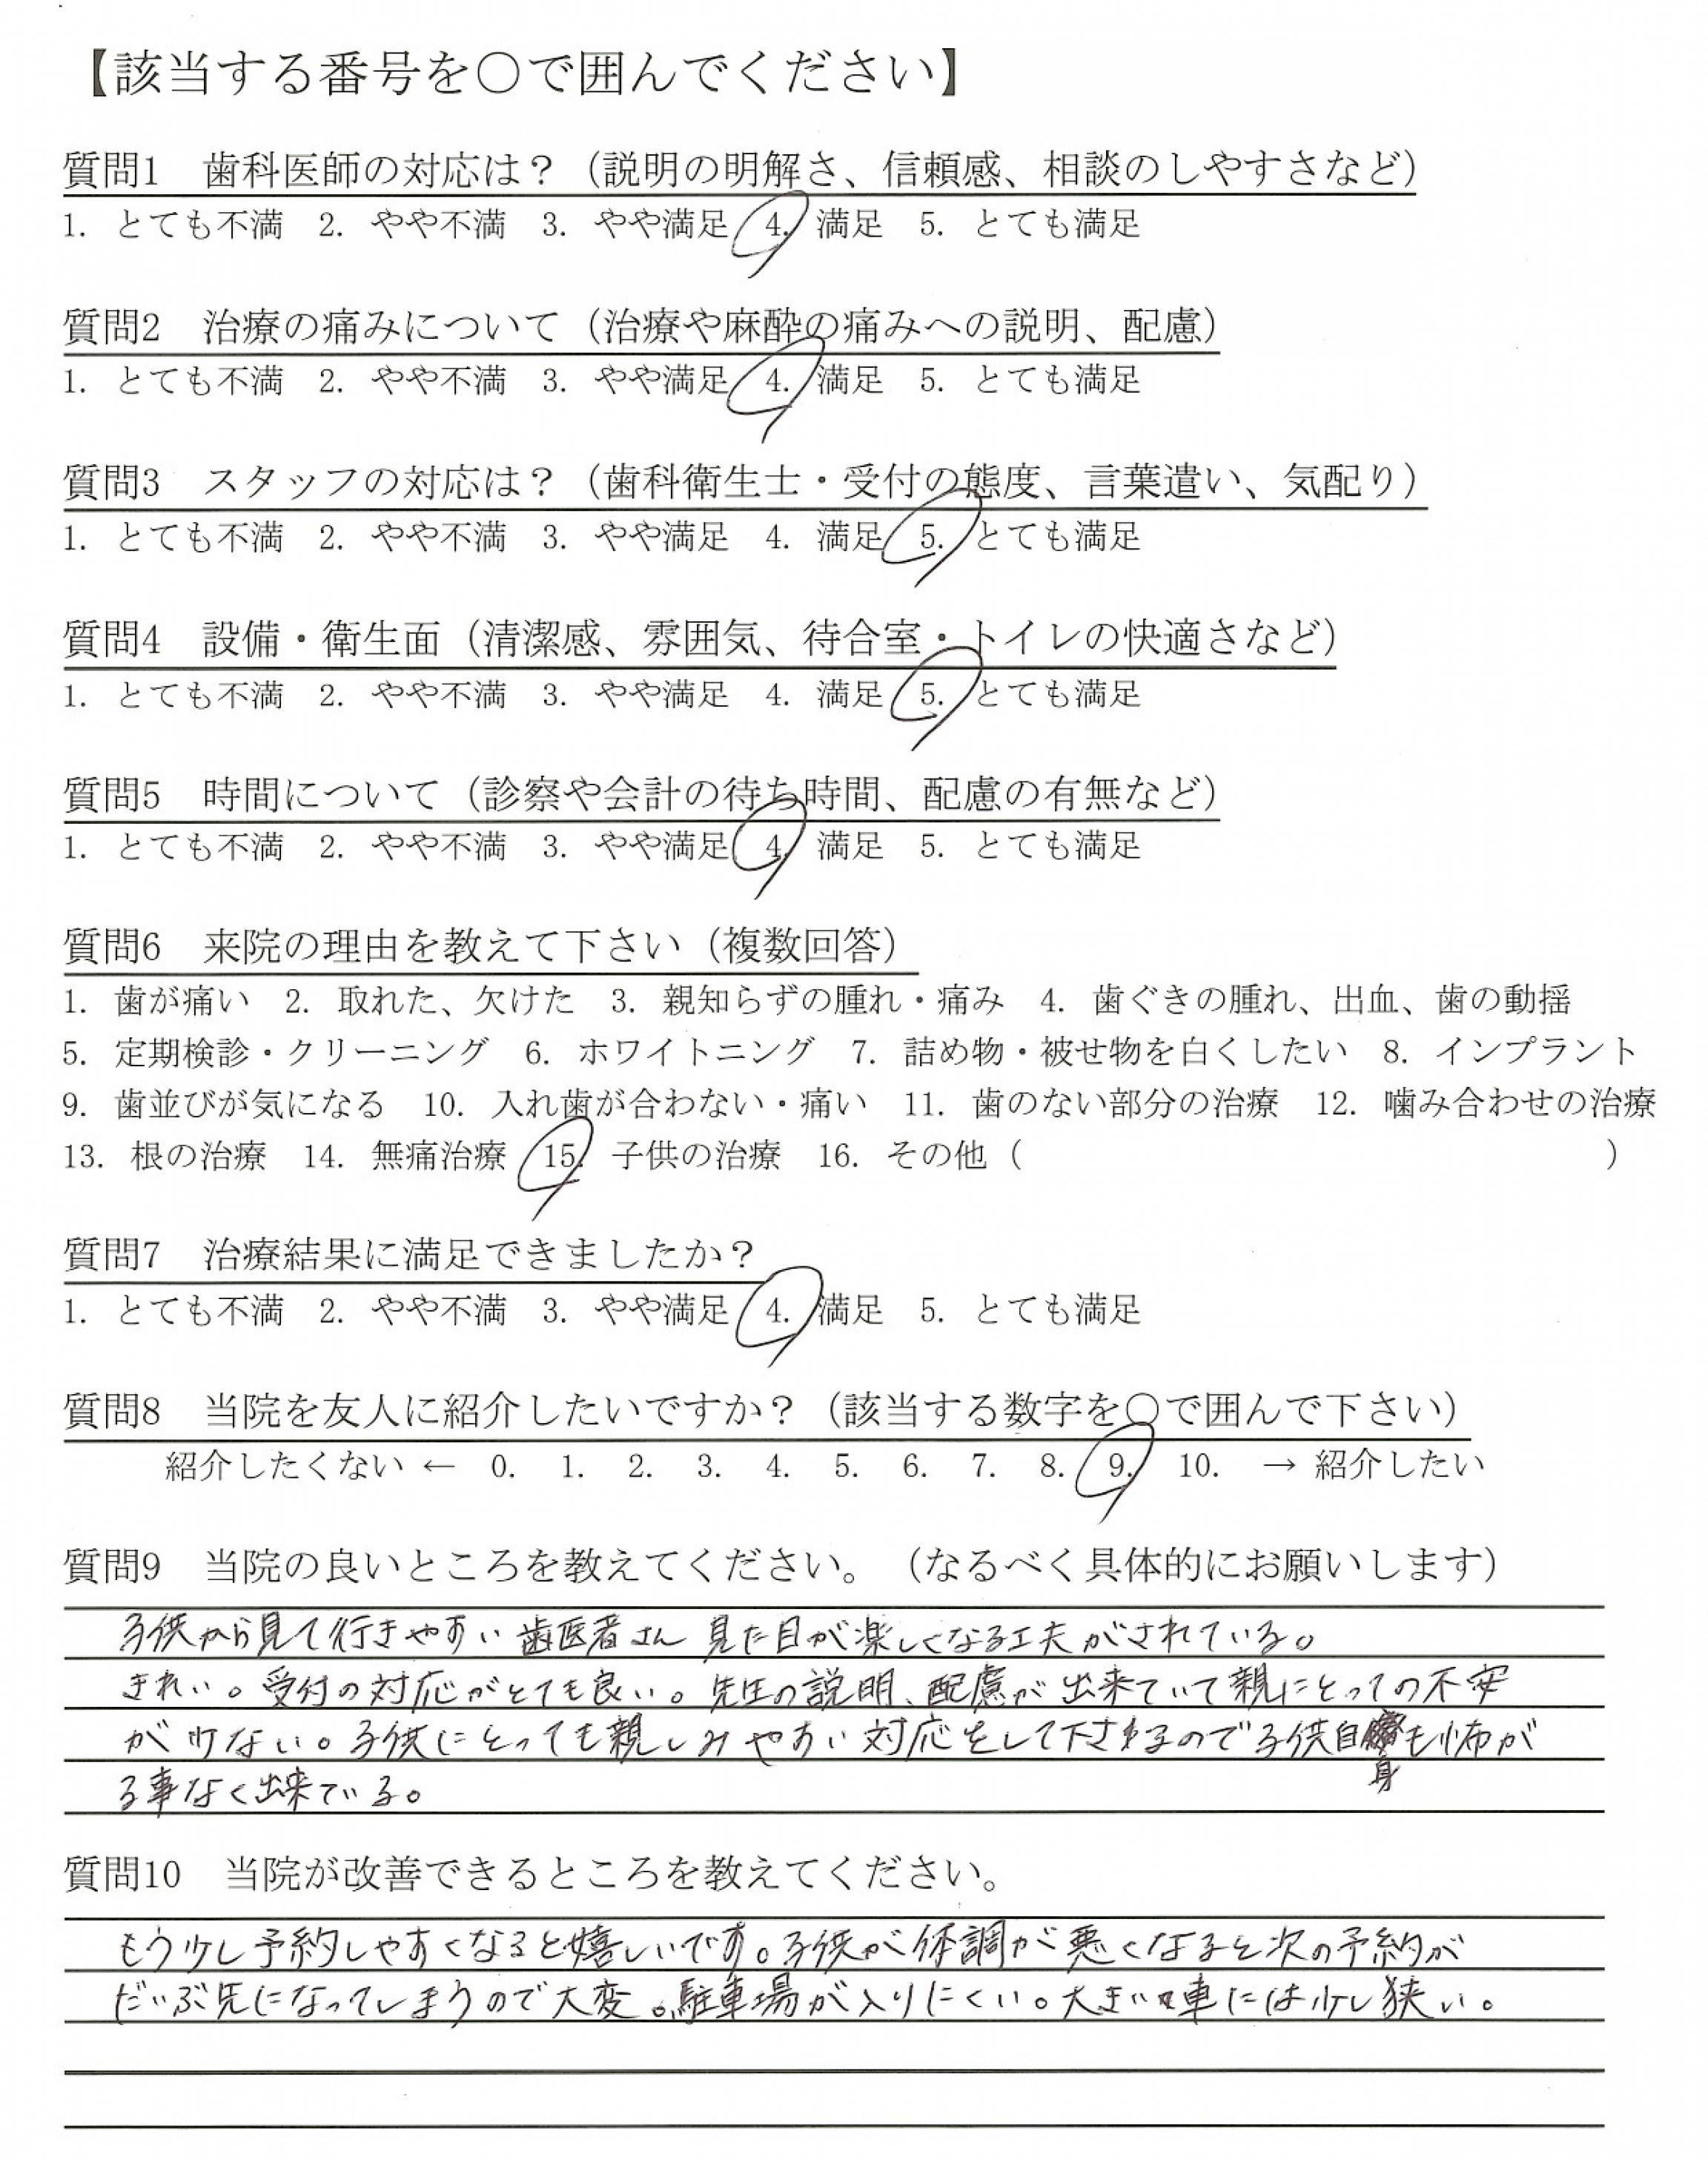 【該当する番号を〇で囲んでください】
質問1　歯科医師の対応は？（説明の明解さ、信頼感、相談のしやすさなど）
1. とても不満　2. やや不満　3. やや満足　4. 満足　5. とても満足
質問2　治療の痛みについて（治療や麻酔の痛みへの説明、配慮）
1. とても不満　2. やや不満　3. やや満足　4. 満足　5. とても満足
質問3　スタッフの対応は？（歯科衛生士・受付の態度、言葉遣い、気配り）
1. とても不満　2. やや不満　3. やや満足　4. 満足　5. とても満足
質問4　設備・衛生面（清潔感、雰囲気、待合室・トイレの快適さなど）
1. とても不満　2. やや不満　3. やや満足　4. 満足　5. とても満足
質問5　時間について（診察や会計の待ち時間、配慮の有無など）
1. とても不満　2. やや不満　3. やや満足　4. 満足　5. とても満足
質問6　来院の理由を教えて下さい（複数回答）
1. 歯が痛い　2. 取れた、欠けた　3. 親知らずの腫れ・痛み　4. 歯ぐきの腫れ、出血、歯の動揺
5. 定期検診・クリーニング　6. ホワイトニング　7. 詰め物・被せ物を白くしたい　8. インプラント
9. 歯並びが気になる　10. 入れ歯が合わない・痛い　11. 歯のない部分の治療　12. 噛み合わせの治療
13. 根の治療　14. 無痛治療　15. 子供の治療　16. その他（　　　）
質問7　治療結果に満足できましたか？
1. とても不満　2. やや不満　3. やや満足　4. 満足　5. とても満足
質問8　当院を友人に紹介したいですか？（該当する数字を〇で囲んで下さい）
紹介したくない ← 0. 1. 2. 3. 4. 5. 6. 7. 8. 9. 10. → 紹介したい
質問9　当院の良いところを教えてください。（なるべく具体的にお願いします）
子供から見て行きやすい歯医者さん 見た目が楽しくなる工夫がされている。
きれい。受付の対応がとても良い。先生の説明、配慮が出来ていて親にとっての不安
が少ない。子供にとっても親しみやすい対応をして下さるので子供自身も怖が
る事なく出来ている。
質問10　当院が改善できるところを教えてください。
もう少し予約しやすくなると嬉しいです。子供が体調が悪くなると次の予約が
だいぶ先になってしまうので大変。駐車場が入りにくい。大きい車には少し狭い。